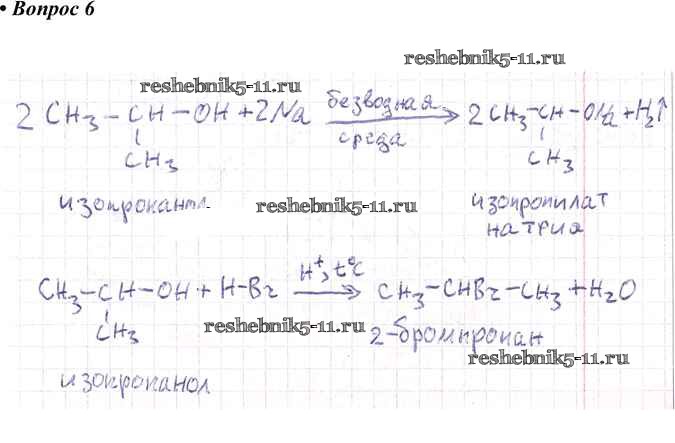 • Вопрос 6
reshebnik5-11.ru
reshebnik5-11.ru
2 CH₃ – CH – OH + 2Na безводная среда → 2 CH₃ – CH – ONa + H₂↑
CH₃ CH₃
изопропанол reshebnik5-11.ru изопропилат
натрия
CH₃ – CH – OH + H–Br H⁺, t°C → CH₃ – CHBr – CH₃ + H₂O
CH₃ reshebnik5-11.ru 2-бромпропан
reshebnik5-11.ru
изопропанол